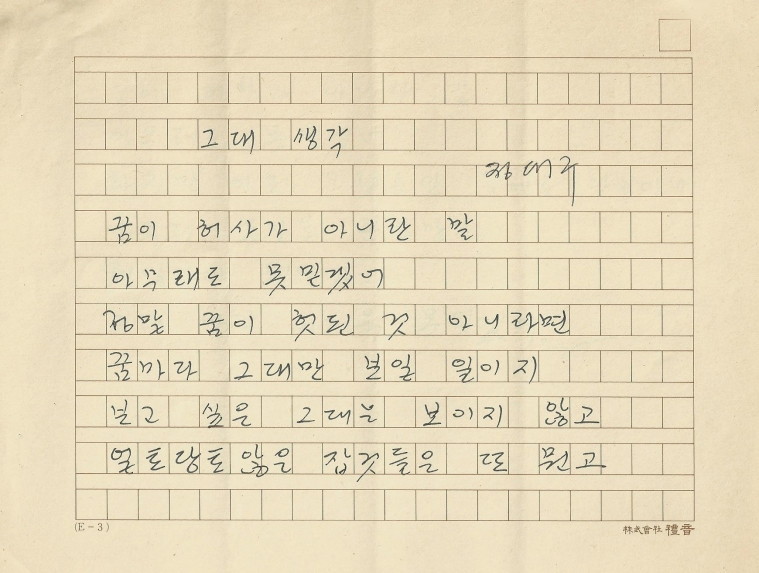 그대 생각
정대구
꿈이 허사가 아니란 말
아무래도 못 믿겠어
정말 꿈이 헛된 것 아니라면
꿈마다 그대만 보일 일이지
보고 싶은 그대는 보이지 않고
얼토당토않은 잡것들은 또 뭔고
(E-3)
株式會社 禮音